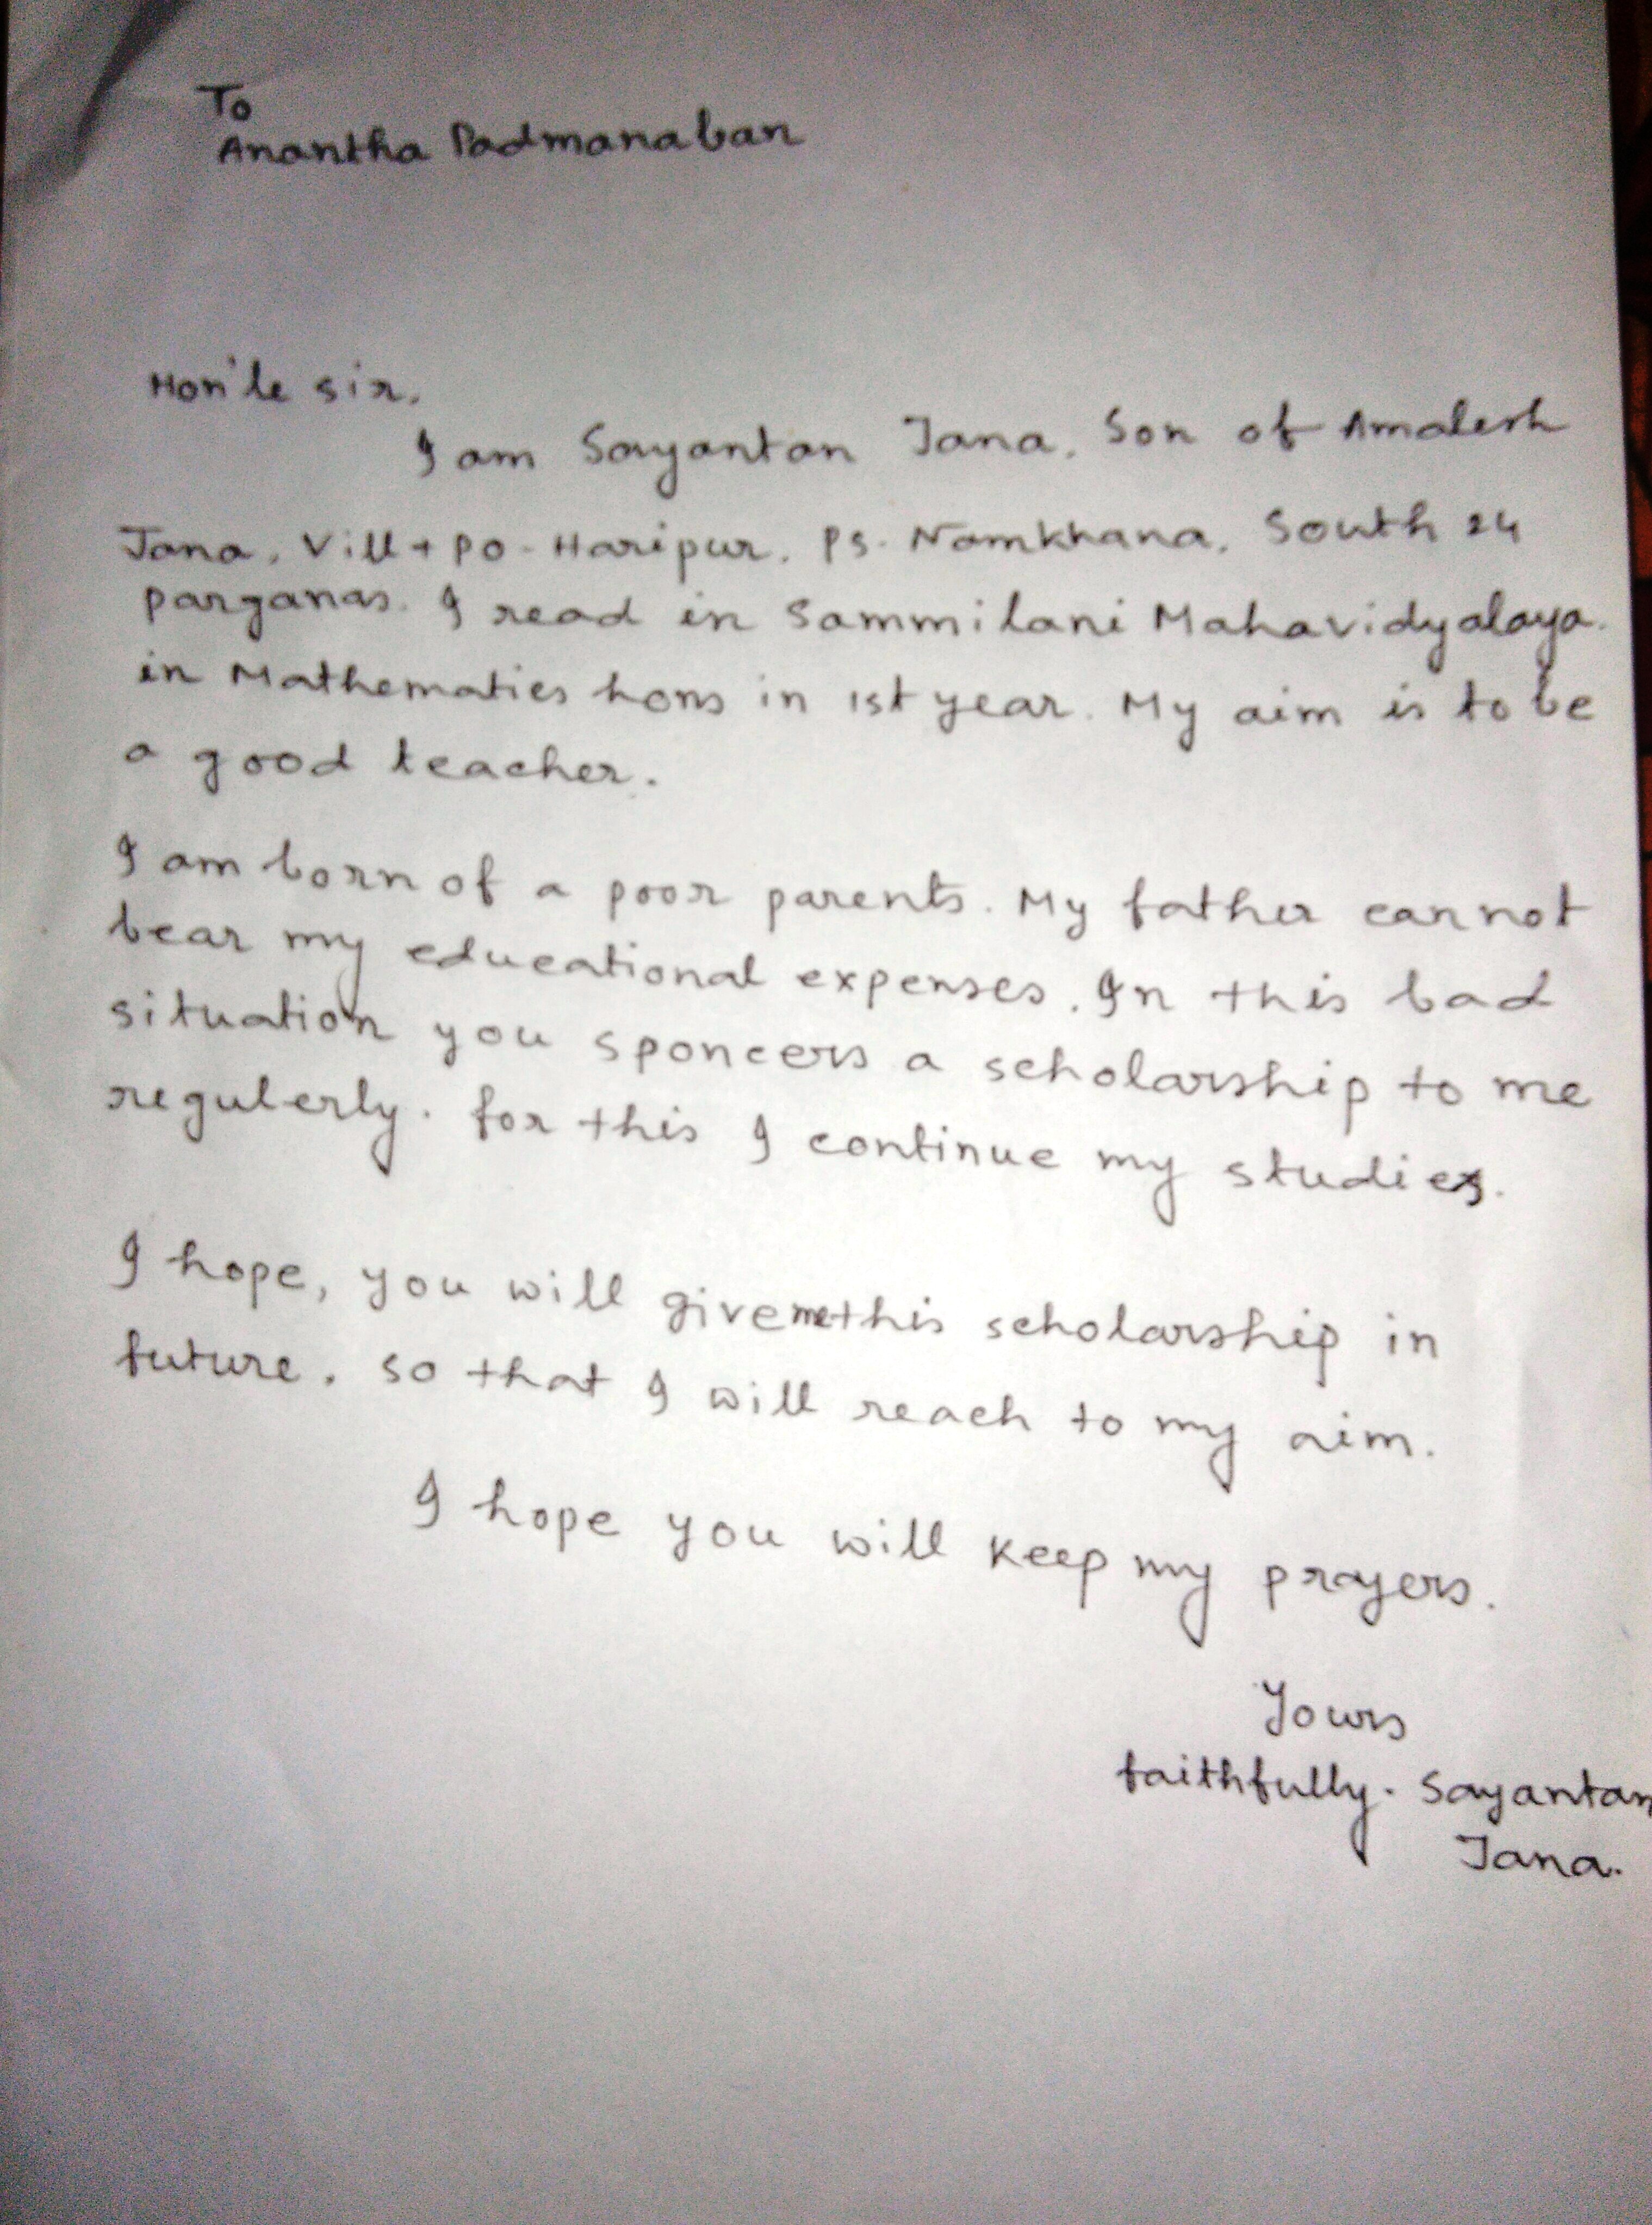 To
Anantha Padmanaban
Hon'le sir,
I am Sayantan Jana, Son of Amalesh
Jana, Vill + po - Haripur, Ps. Namkhana, South 24
parganas. I read in Sammilani Mahavidyalaya.
in Mathematics hons in 1st year. My aim is to be
a good teacher.
I am born of a poor parents. My father cannot
bear my educational expenses. In this bad
situation you sponcers a scholarship to me
regulerly. for this I continue my studies.
I hope, you will give me this scholarship in
future. so that I will reach to my aim.
I hope you will keep my prayers.
Yours
faithfully. Sayantan
Jana.